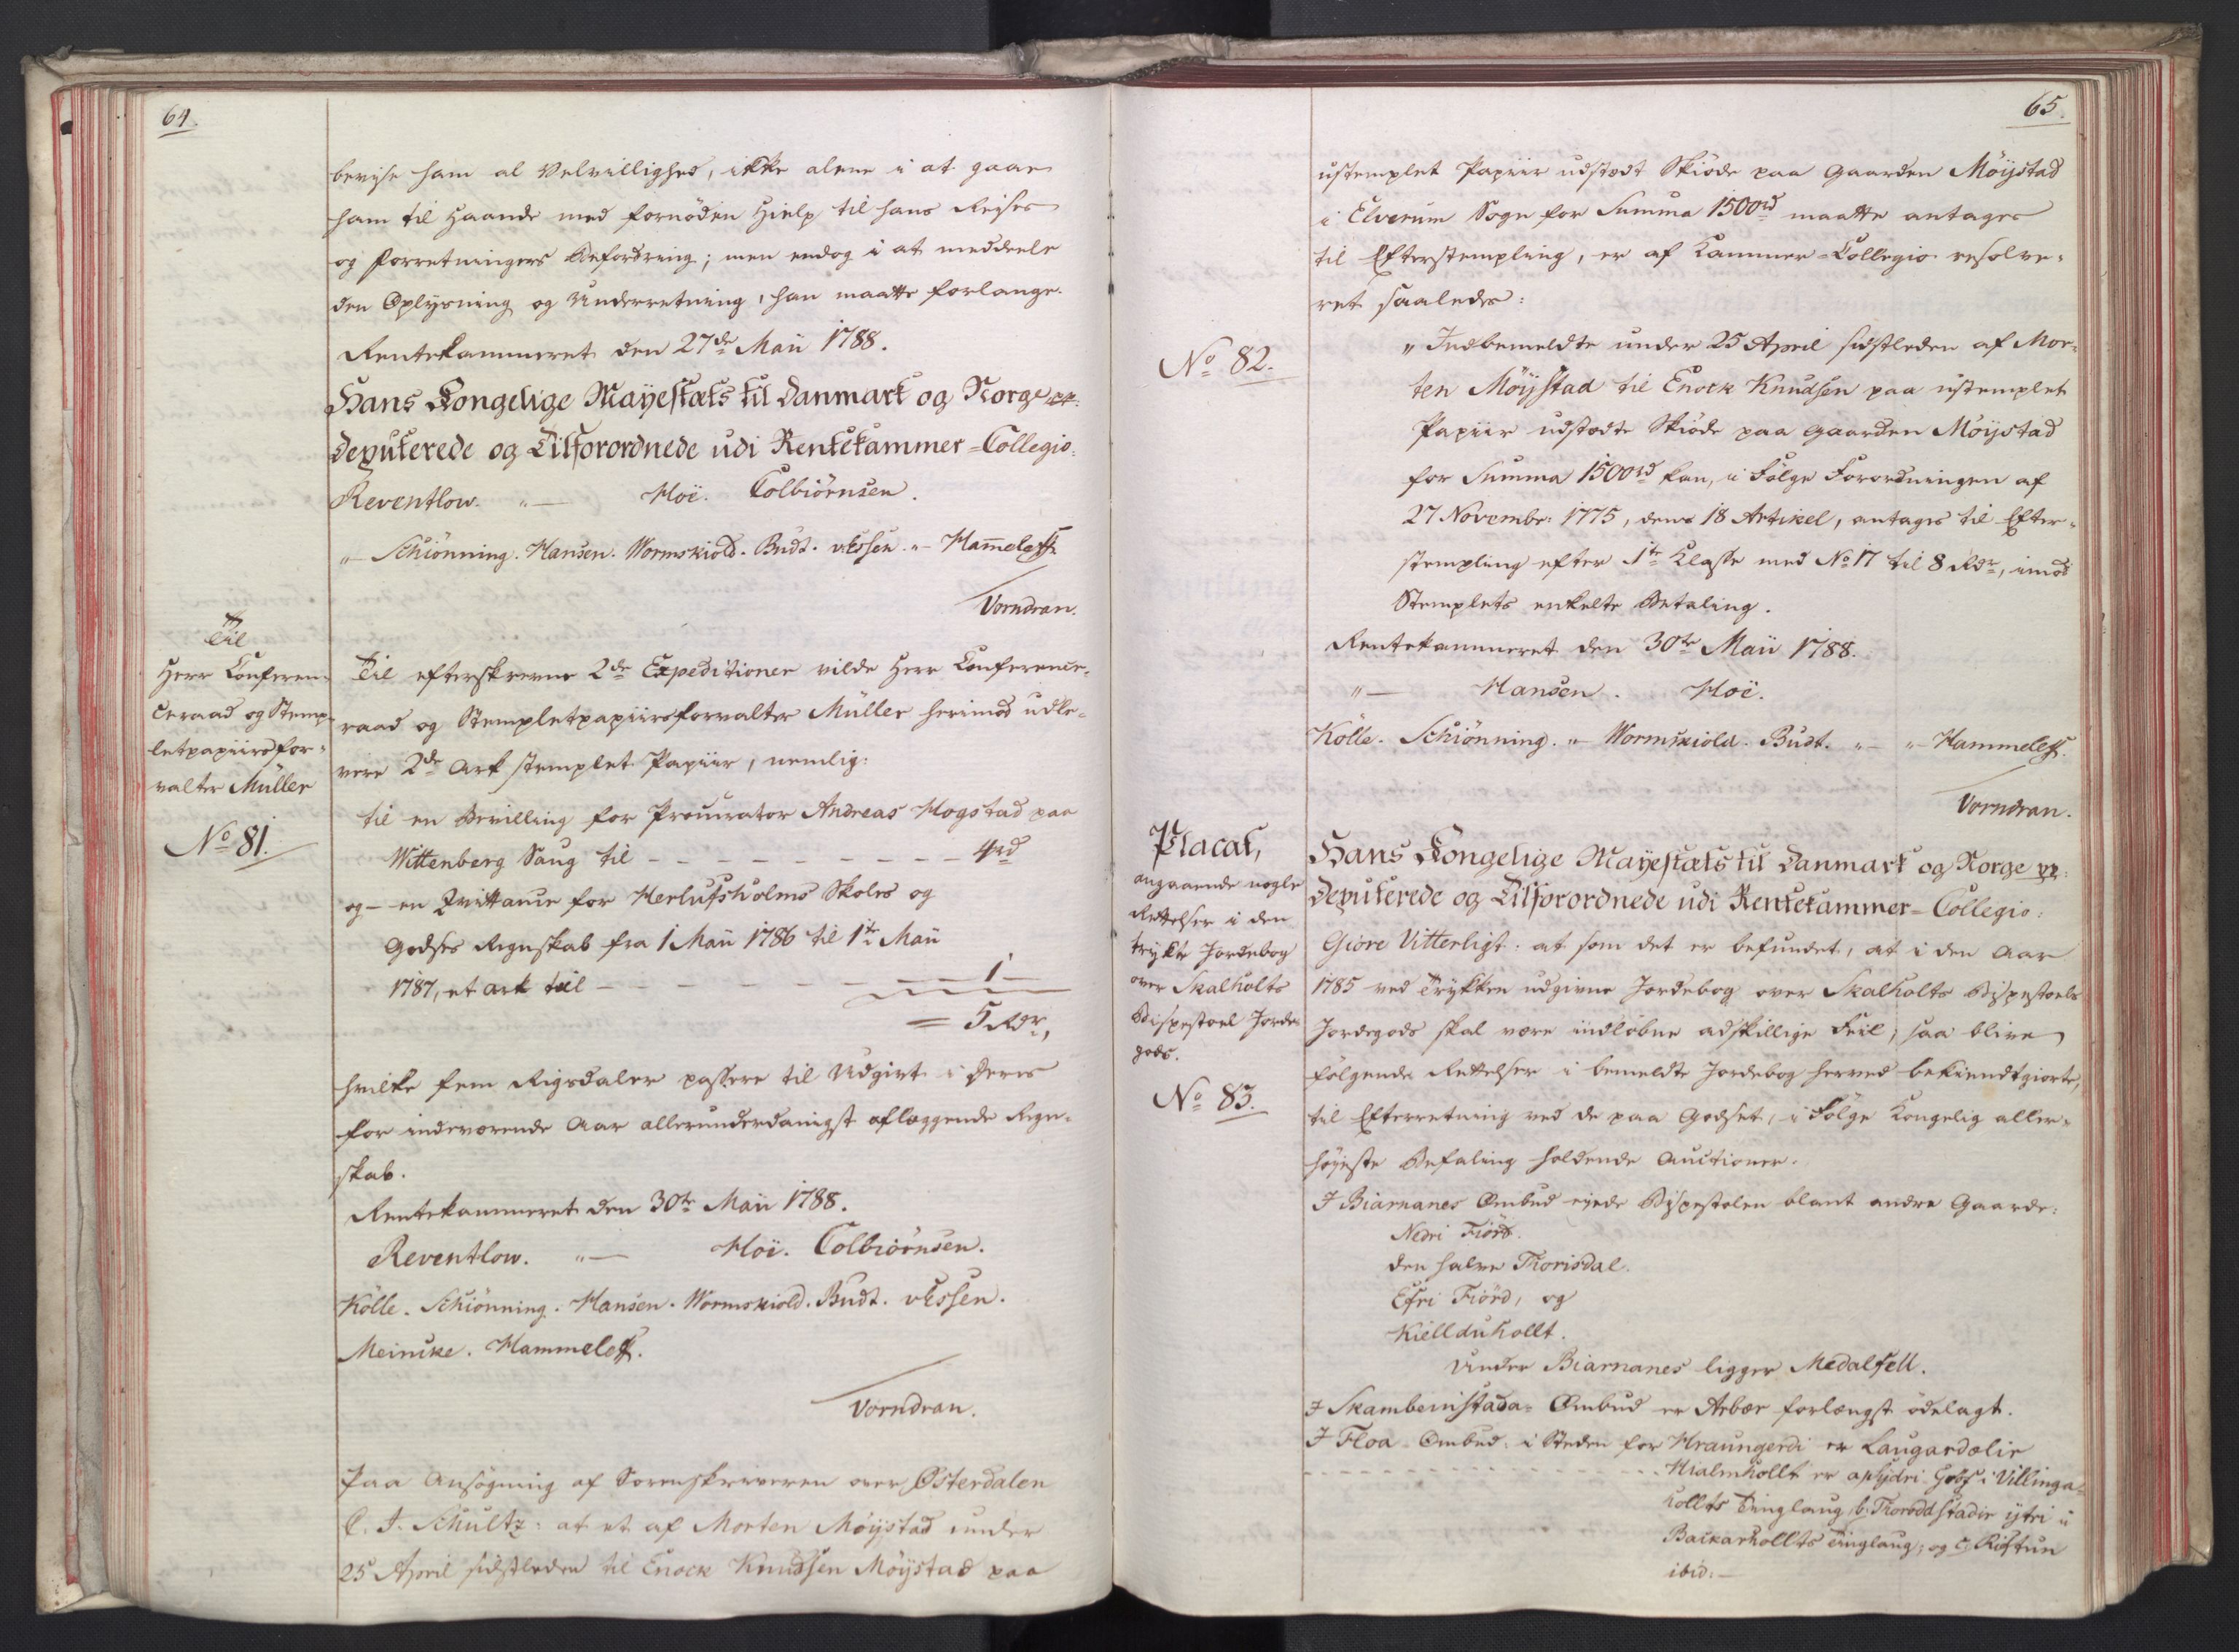 64.
bevise ham al Velvillighed, ikke alene i at gaae
ham til Haande med fornöden Hielp til hans Reises
og Forretningers Befordring; men endog i at meddeele
den Oplysning og Underretning, han maatte forlange.
Rentekammeret den 27de Maii 1788.
Hans Kongelige Mayestæts til Danmark og Norge pp:
Deputerede og Tilforordnede udi Rentekammer=Collegio:
Reventlow. "— Hoë. Colbiörnsen.
"— Schiönning. Hansen. Wormskiold. Budt. v Essen. "— Hammeleff.
Vorndran.
Til
Herr Conferen-
ceraad og Stemp-
letpapiirsfor-
valter Müller
No 81.
Til efterskrevne 2de Expeditioner vilde Herr Conference-
raad og Stempletpapiirsforvalter Müller herimod udle-
vere 2de Ark stemplet Papiir, nemlig:
til en Bevilling for Procurator Andreas Hogstad paa
Wittenberg Saug til – – – – – – – – 4rd
og – en Qvittance for Herlufsholms Skoles og
Godses Regnskab fra 1 Maii 1786 til 1te Maii
1787, et Ark til – – – – – – 1 –
= 5 Rdr,
hvilke fem Rigsdaler passere til Udgivt i Deres
for indeværende Aar allerunderdanigst aflæggende Regn-
skab.
Rentekammeret den 30te Maii 1788.
Reventlow. "— Hoë. Colbiörnsen.
Kölle. Schiönning. Hansen. Wormskiold. Budt. v Essen.
Meincke. Hammeleff.
Vorndran.
Paa Ansögning af Sorenskriveren over Østerdalen
C. J. Schultz: at et af Morten Möijstad under
25 April sidstleden til Enock Knudsen Möijstad paa
65.
ustemplet Papiir udstædt Skiöde paa Gaarden Möijstad
i Elverum Sogn for Summa 1500rd maatte antages
til Efterstempling, er af Kammer=Collegio resolve-
ret saaledes:
No 82.
" Indbemeldte under 25 April sidstleden af Mor-
ten Möijstad til Enock Knudsen paa ustemplet
Papiir udstædte Skiöde paa Gaarden Möijstad
for Summa 1500rd kan, i Fölge Forordningen af
27 Novembr: 1775, dens 18 Artikel, antages til Efter-
stempling efter 1te Klasse med No 17 til 8 Rdr, imod
Stemplets enkelte Betaling.
Rentekammeret den 30te Maii 1788.
"— Hansen. Hoë.
Kölle. Schiönning. "— Wormskiold. Budt. "— "— Hammeleff.
Vorndran.
Placat,
angaaende nogle
Rettelser i den
trykte Jordebog
over Skalholts
Bispestoel Jorde-
gods.
No 83.
Hans Kongelige Mayestæts til Danmark og Norge pp:
Deputerede og Tilforordnede udi Rentekammer=Collegio:
Giöre Vitterligt: at som det er befundet, at i den Aar
1785 ved Trykken udgivne Jordebog over Skalholts Bispestoels
Jordegods skal være indlöbne adskillige Feil; saa blive
fölgende Rettelser i bemeldte Jordebog herved bekiendtgiorte,
til Efterretning ved de paa Godset, i Fölge Kongelig aller-
höjeste Befaling holdende Auctioner.
I Biarnanes Ombud ejede Bispestolen blant andre Gaarde:
Nedri Fiörd.
den halve Thorisdal.
Efri Fiörd, og
Kiellduhollt.
Under Biarnanes ligger Medalfell.
I Skambeinstada- Ombud er Arbær forlængst ödelagt.
I Floa- Ombud: i Steden for Hraungerdi er Laugardælir
– – – – – – – – – Hialmhollt er a, Sydri Gröf i Villinga-
hollts Tinglaug, b, Thorodd stadir ijtri i
Backarhollts Tinglaug; og c, Riftun
ibid: –